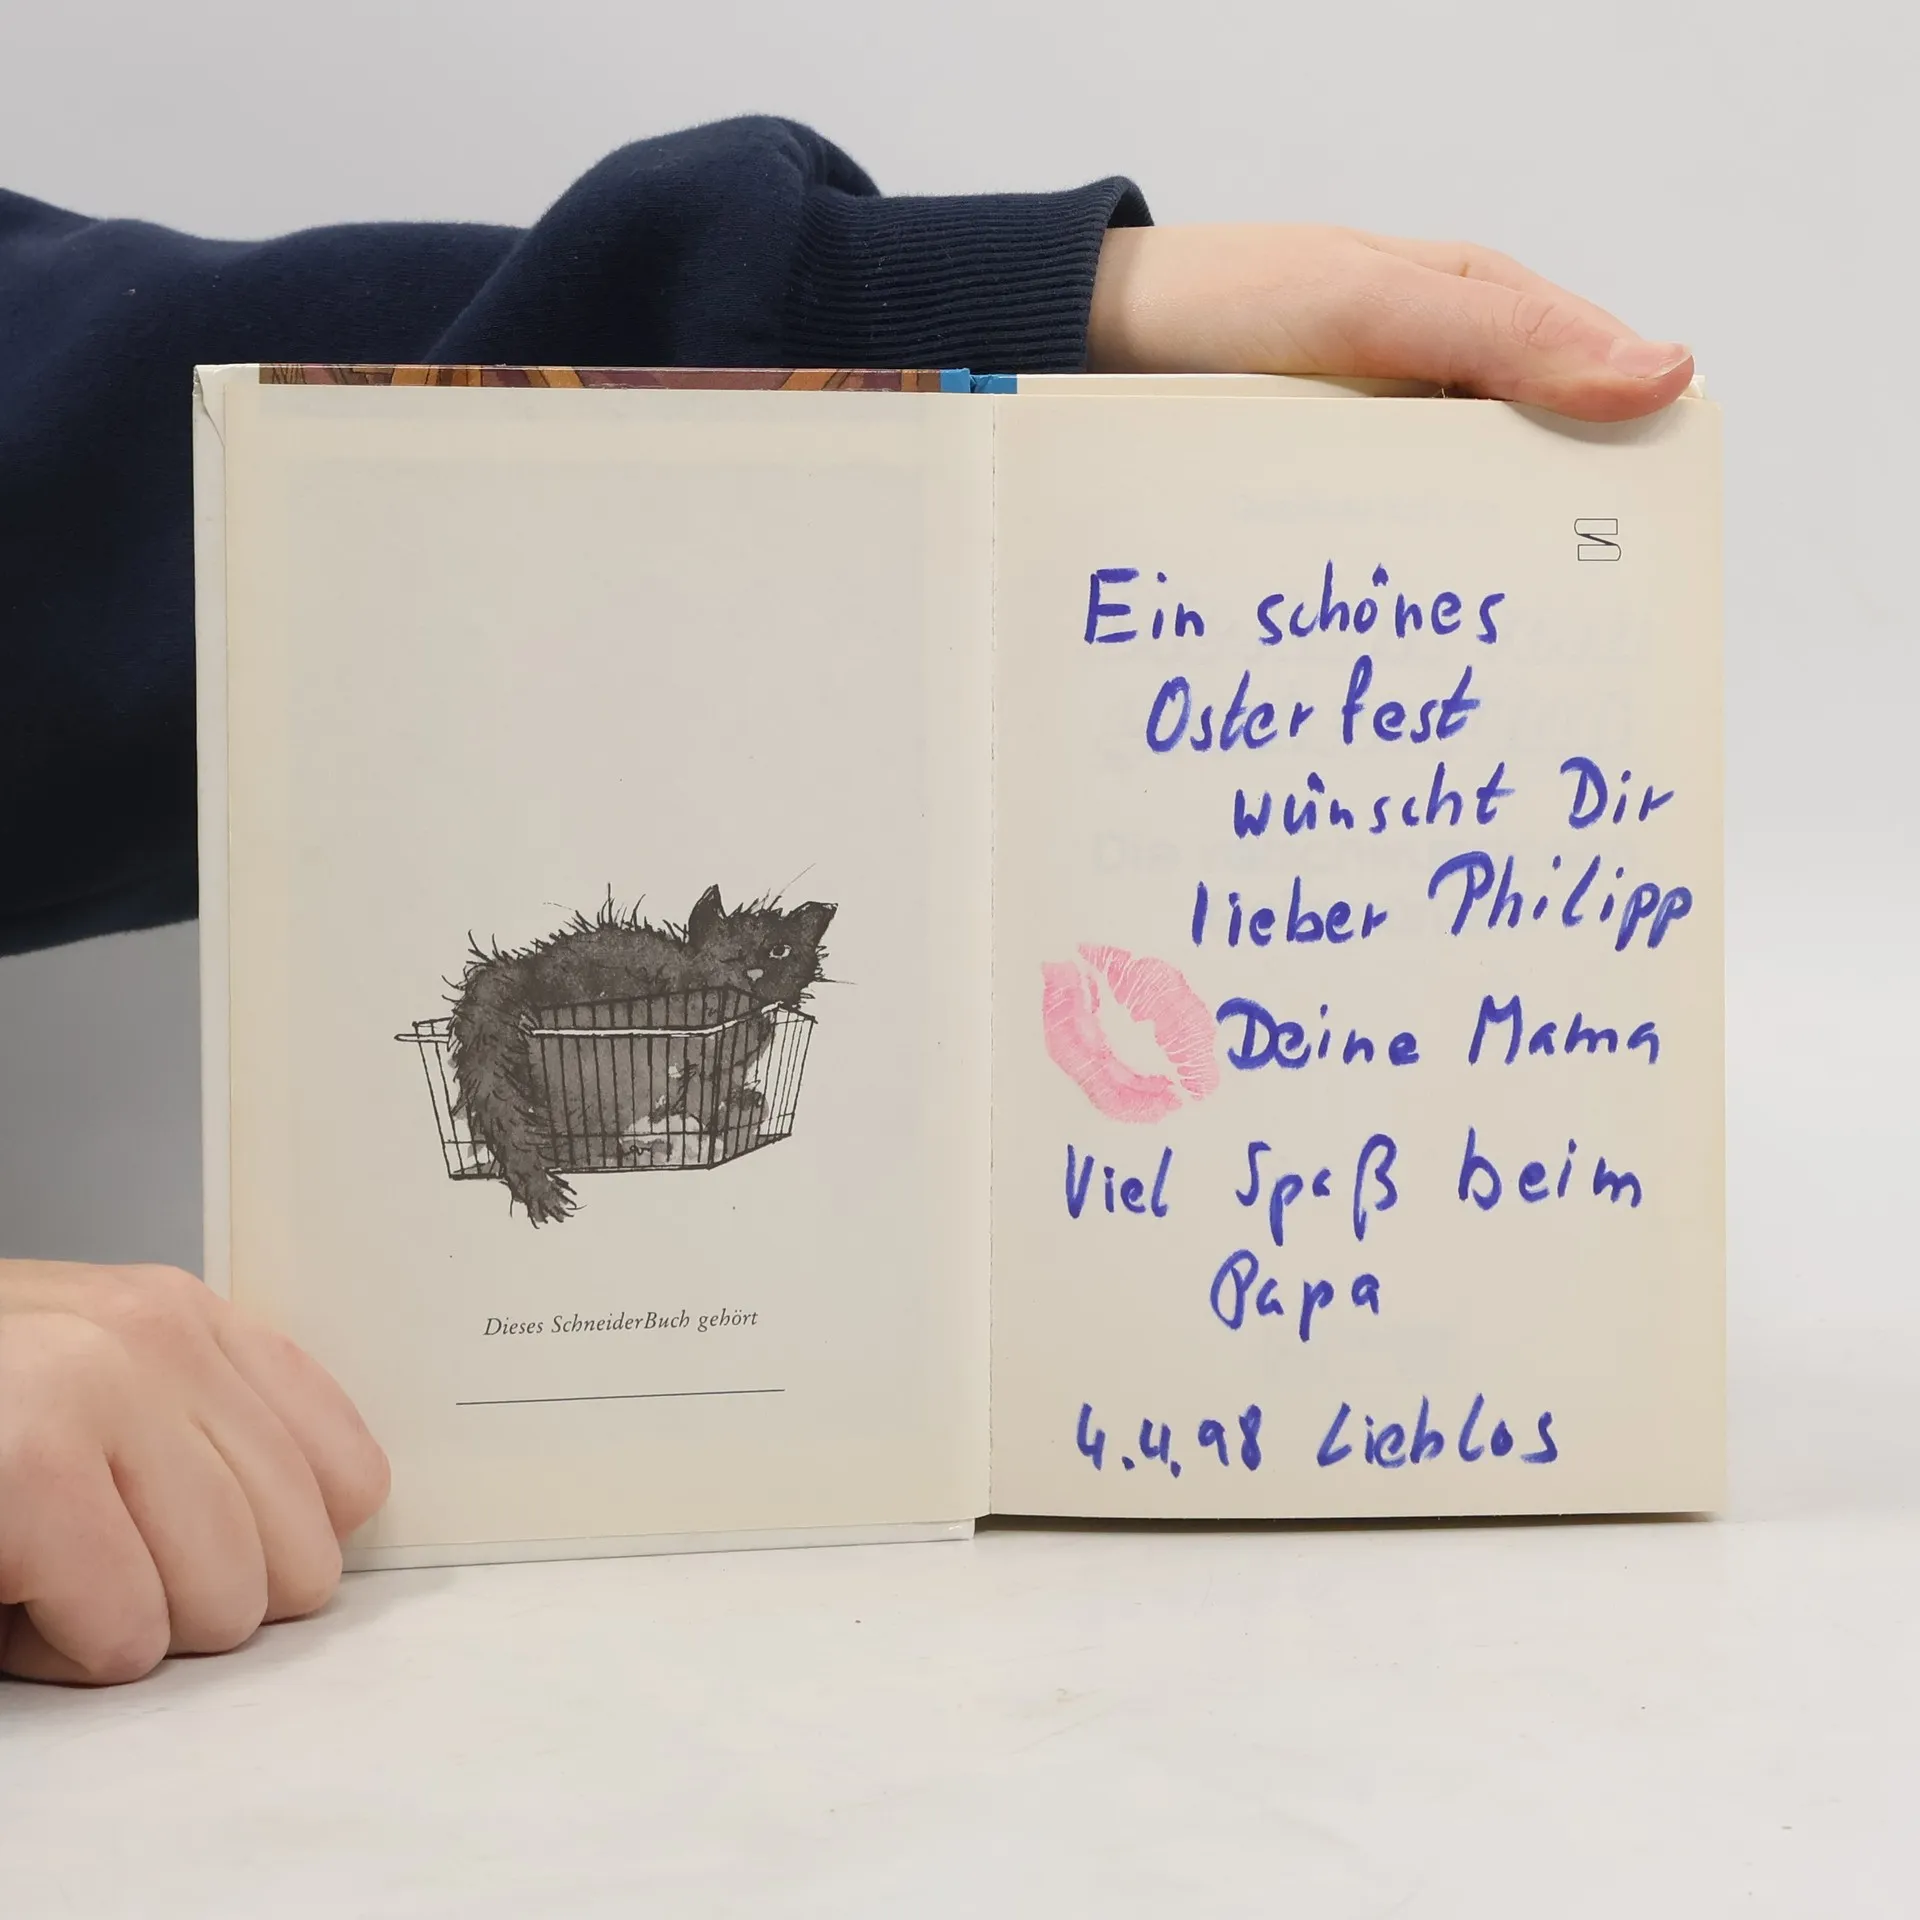 Dieses SchneiderBuch gehört
Ein schönes
Osterfest
wünscht Dir
lieber Philipp
Deine Mama
Viel Spaß beim
Papa
4.4.98 Lieblos